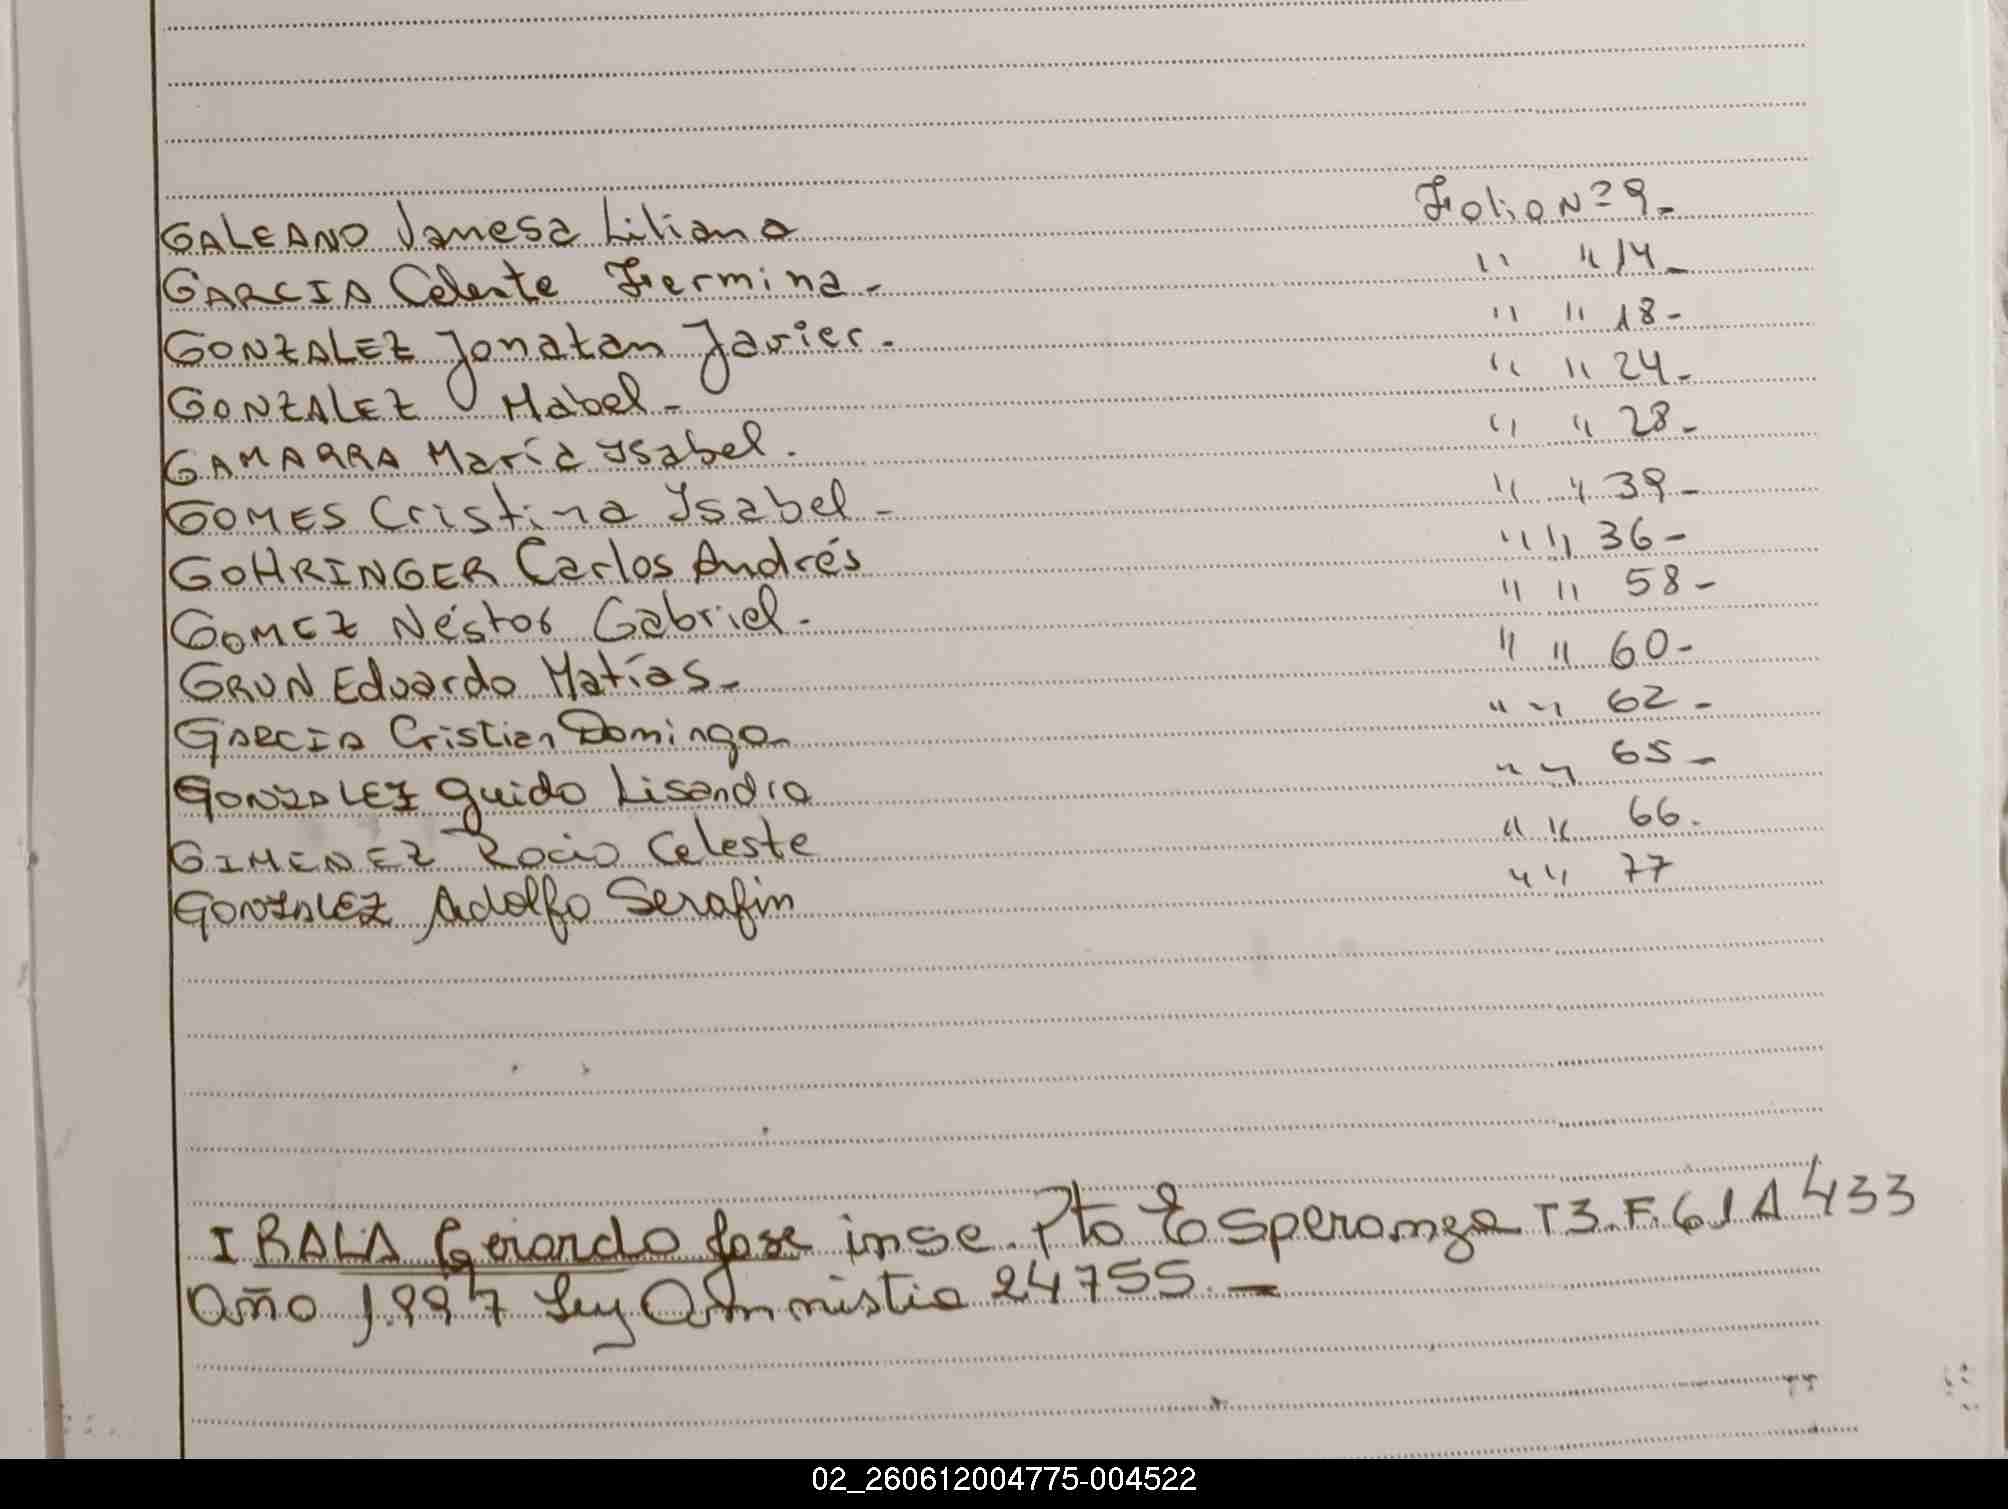 GALEANO Vanesa Liliana Folio Nº 9-
GARCIA Celeste Fermina- " " 14-
GONZALEZ Jonatan Javier- " " 18-
GONZALEZ Mabel- " " 24-
GAMARRA María Ysabel. " " 28-
GOMES Cristina Ysabel- " " 39-
GOHRINGER Carlos Andrés " " 36-
GOMEZ Néstor Gabriel- " " 58-
GRUN Eduardo Matías- " " 60-
GARCIA Cristian Domingo- " " 62-
GONZALEZ Guido Lisandro " " 65-
GIMENEZ Rocio Celeste " " 66.
GONZALEZ Adolfo Serafin " " 77
IRALA Gerardo Jose inse. Pto Esperanza T3.F.61A 433
Año 1.997 Ley Amnistia 24755.-
02_260612004775-004522